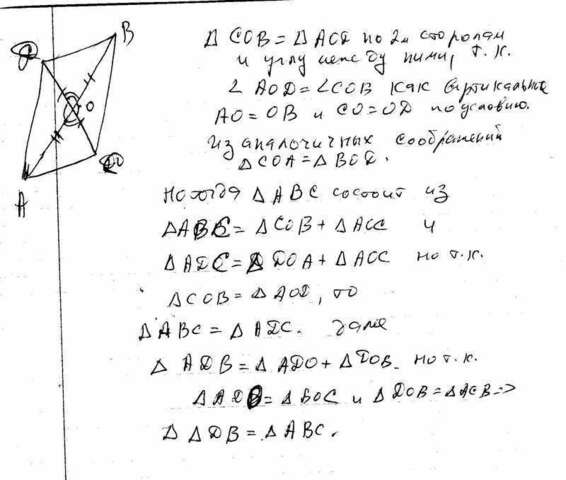 B
O
A
Δ COB = Δ AOD по 2м сторонам
и углу между ними, т.к.
∠ AOD = ∠ COB как вертикальные
AO = OB и CO = OD по условию.
Из аналогичных соображений
Δ COA = Δ BOD.
Но тогда Δ ABC состоит из
Δ ABC = Δ COB + Δ AOC и
Δ ADC = Δ DOA + Δ AOC но т.к.
Δ COB = Δ AOD, то
Δ ABC = Δ ADC. далее
Δ ADB = Δ ADO + Δ DOB. но т.к.
Δ BOC и Δ DOB = =>
Δ ADB = Δ ABC.